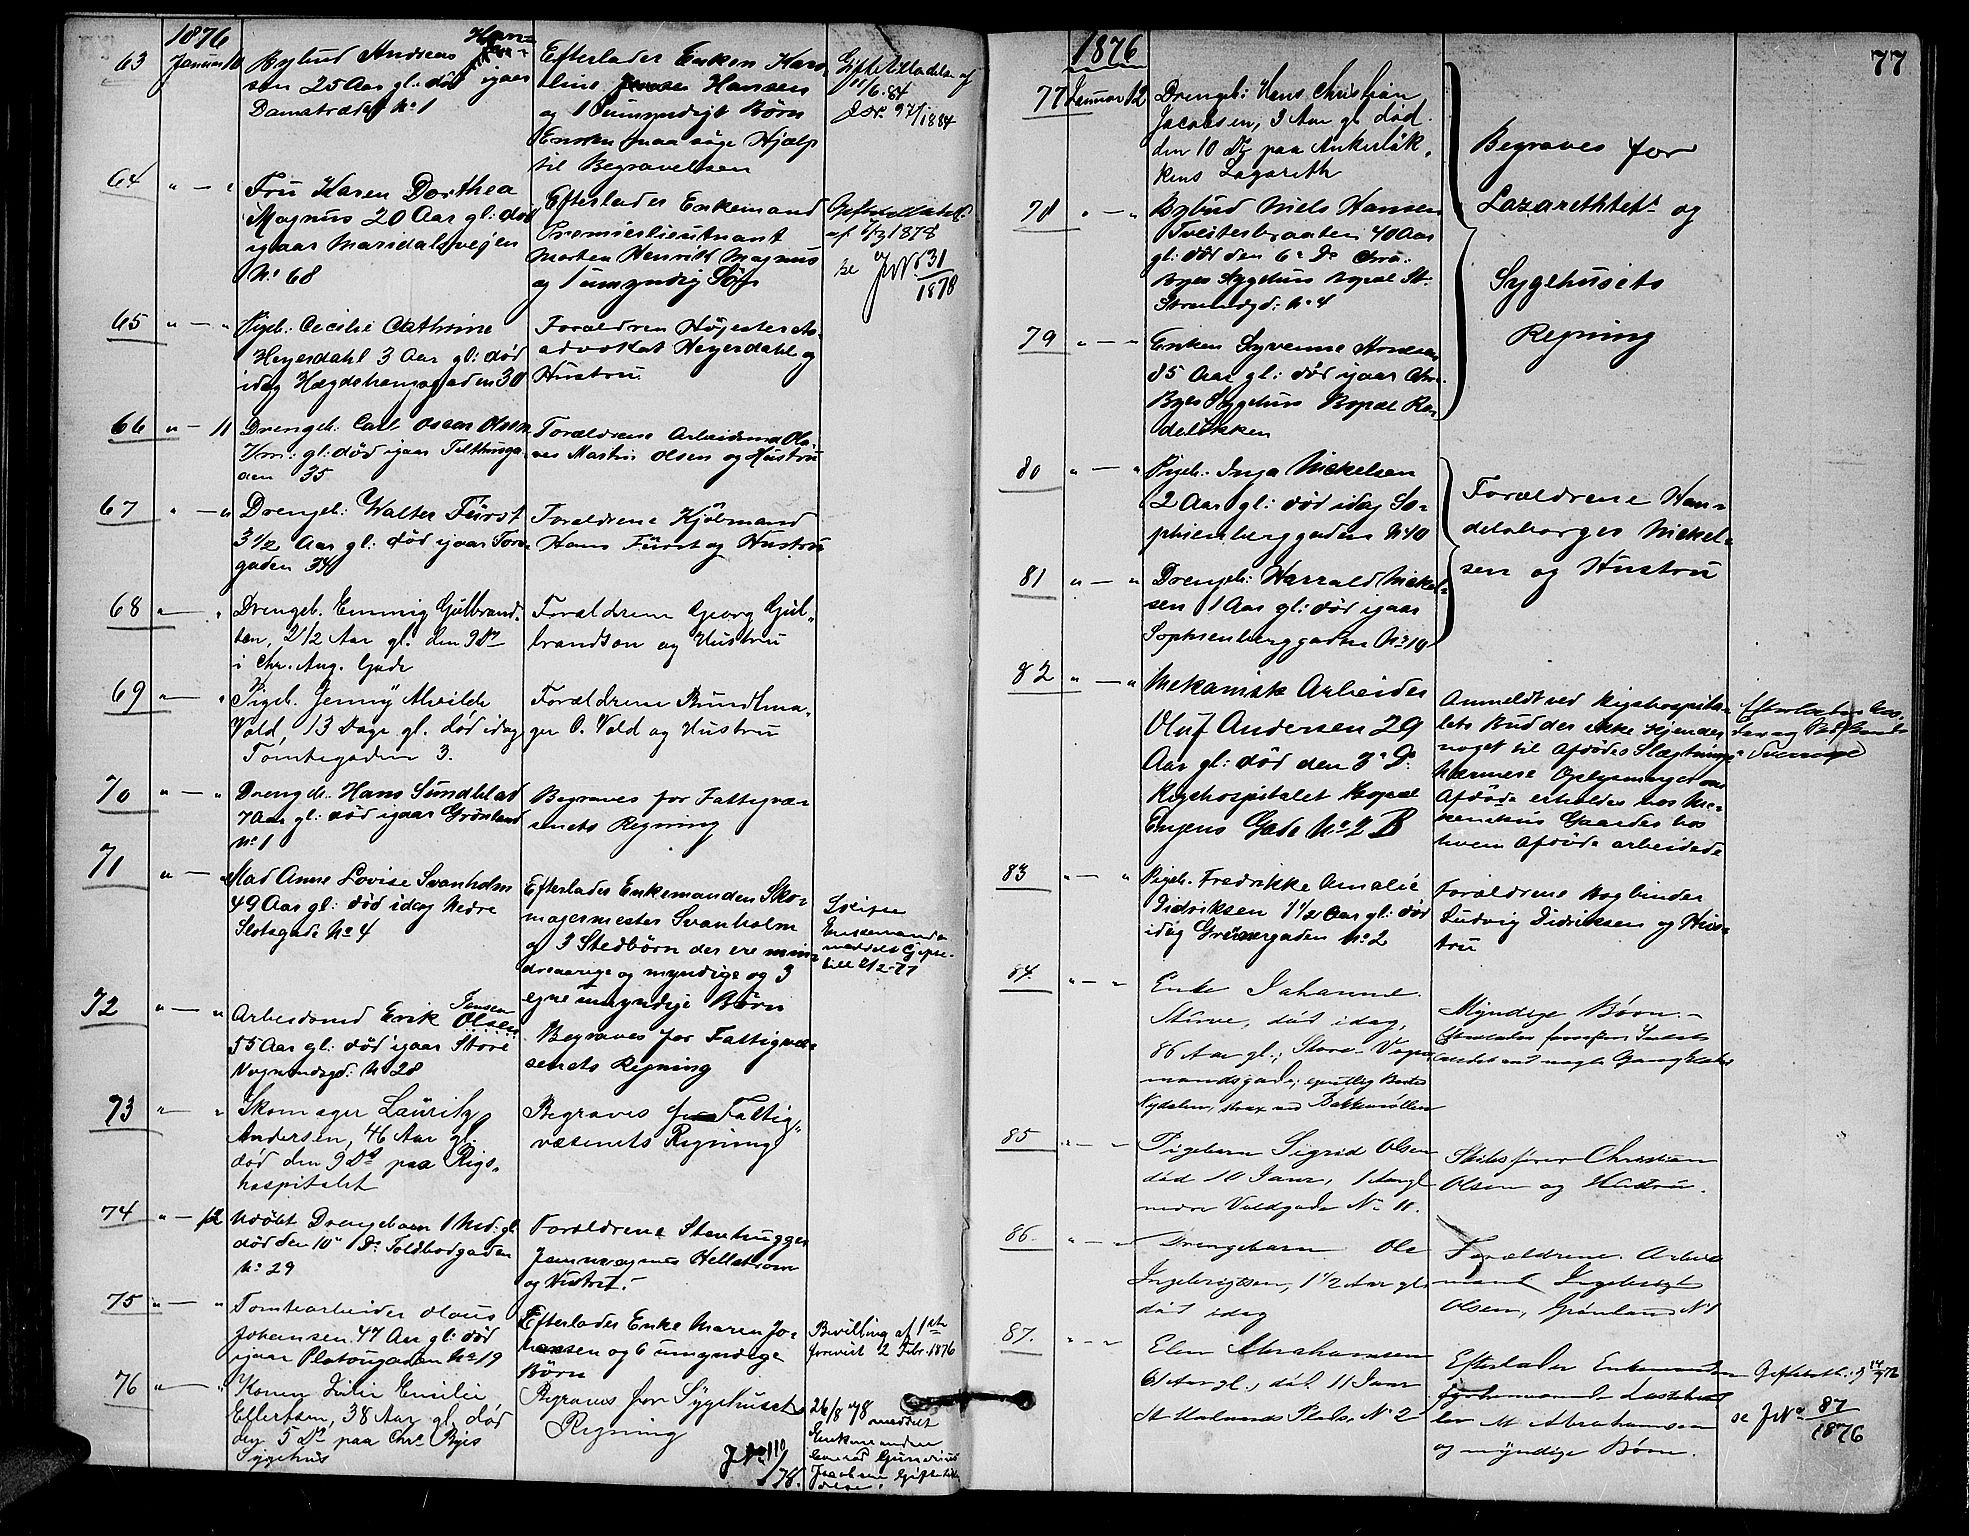 1876
63 Januar 10 Bybud Andreas Han-
sen 25 Aar gl: død igaar
Damstrædet No 1
Efterlader Enken Karo-
line Hansen
og 1 umyndigt Børn
Enken maa søge Hjælp
til Begravelsen
Giftetilladelse af
11/6.84
J.Nr. 97/1884
64 " — " Fru Karen Dorthea
Magnus 20 Aar gl: død
igaar Maridalsvejen
No 68
Efterlader Enkemand
Premierlieutnant
Morten Henrik Magnus
og 1 umyndig Søn
af 1878
se JNo 31
1878
65 " — " Pigeb: Cecilie Cathrine
Heyerdahl 3 Aar gl: død
idag Hægdehaugsgaden 30
Forældren Højesterets-
advokat Heyerdahl og
Hustru
66 " — 11 Drengeb. Carl Oscar Olsen
gl: død igaar Telthusga-
den 35
Forældrene Arbeidsmd Ola-
ves Martin Olsen og Hustru
67 " — " Drengeb: Walter Fürst
3 1/2 Aar gl: død igaar Torv-
gaden 34
Forældrene Kjøbmand
Hans Fürst og Hustru
68 " — " Drengeb. Emmig Gulbrand-
sen, 2 1/2 Aar gl. den 9 Ds
i Chr. Aug. Gade
Forældrene Georg Gul-
brandsen og Hustru
69 " — " Pigeb. Jenny Alvilde
Vold, 13 Dage gl. død idag
Tomtegaden 3.
Forældrene Bundtma-
ger O. Vold og Hustru
70 " — " Drengeb. Hans Sundblad
7 Aar gl: død igaar Grønland
No 1
Begraves for Fattigvæ-
senets Regning
71 " — " Mad Anne Lovise Svanholm
49 Aar gl: død idag Nedre
Slotsgade No 4
Efterlader Enkemanden Sko-
magermester Svanholm
og 3 Stedbørn der ere min-
dreaarige og myndige og 3
egne umyndige Børn
Enkemanden
meddelt Gifte-
till
72 " — " Arbeidsmd Erik Jensen Olsen
55 Aar gl: død igaar Store
Vognmdsgd. No 28
Begraves for Fattigvæ-
senets Regning
73 " — " Skomager Lauritz
Andersen, 46 Aar gl.
død den 9 Ds paa Rigs-
hospitalet
Begraves for Fattig-
væsenets Regning
74 " — 12 Udøbt Drengebarn 1 Md: gl
død den 10 Ds Toldbodgaden
No 29
Forældrene Stenhugger
Hellstrom
og Hustru.
75 " — " Tomtearbeider Olaus
Johansen 47 Aar gl: død
igaar Platougaden No 19
Efterlader Enke Maren Jo-
hansen og 6 umyndige
Børn
Bevilling af 1ste
forevist 2 Febr. 1876
76 " — " Konen Julie Emilie
Ellertsen, 38 Aar gl, død
den 5 Ds paa Chr. Byes
Sygehus
Begraves for Sygehusets
Regning
JNo 110/78.
26/8 78 meddelt
Enkemanden
Gunerius
Jacobsen Giftetill-
adelse.
77
1876
77 Januar 12 Drengeb: Hans Christian
Jacobsen, 3 Aar gl død
den 10 Ds paa Ankerløk-
kens Lazareth
78 " — " Bybud Niels Hansen
Tveiterbraaten 40 Aar
gl: død den 6 Ds Chra.
Byes Sygehus Bopæl St.
Strandgd: No 4
79 " — " Enken Syvenne Andersen
85 Aar gl: død igaar Chr.
Byes Sygehus Bopæl Ro-
deløkken
Begraves for
Lazarethtets og
Sygehusets
Regning
80 " — " Pigeb: Inga Mekelsen
2 Aar gl: død idag So-
phienberggaden No 10
81 " — " Drengeb: Harrald Mekel-
sen 1 Aar gl: død igaar
Sophienberggaden No 19
Forældrene Han-
delsborger Mekel-
sen og Hustru
82 " — " Mekaniske Arbeider
Oluf Andersen 29
Aar gl: død den 3 Ds
Rigshospitalet Bopæl
Eugens Gade No 2 B
Anmeldt ved Rigshospita-
lets Bud der ikke kjender
noget til Afdødes Slægtninge
Nærmere Oplysninger om
Afdøde erholdes hos Me-
kanikus Gaarder hos
hvem Afdøde arbeidede
83 " — " Pigeb. Fredrikke Amalie
Didriksen 1 1/2 Aar gl: død
idag Grønnergaden No 2
Forældrene Bogbinder
Ludvig Didriksen og Hus-
tru
84. " — " Enke Johanne
Stuve, død idag,
86 Aar gl.; Store Vogn-
mandsgade, egentlig Boste
Nydalen, strax ved Bakkemøllen
Myndige Børn.-
85 " — " Pigebarn Sigrid Olsen
død 10 Janr, 1 Aar gl
nedre Voldgade No 11.
Skibsfører Christian
Olsen og Hustru.
86. " — " Drengebarn Ole
Ingebrigtsen, 1 1/2 Aar gl.
død idag
Forældrene Arbeids-
mand Ingebrigt
Olsen, Grønland No 1
87. " — " Elen Abrahamsen
61 Aar gl., død 11 Janr
St Halvards Plads, No 2
Efterlader Enkemanden
M Abrahamsen
og myndige Børn.
se JNo 87
1876